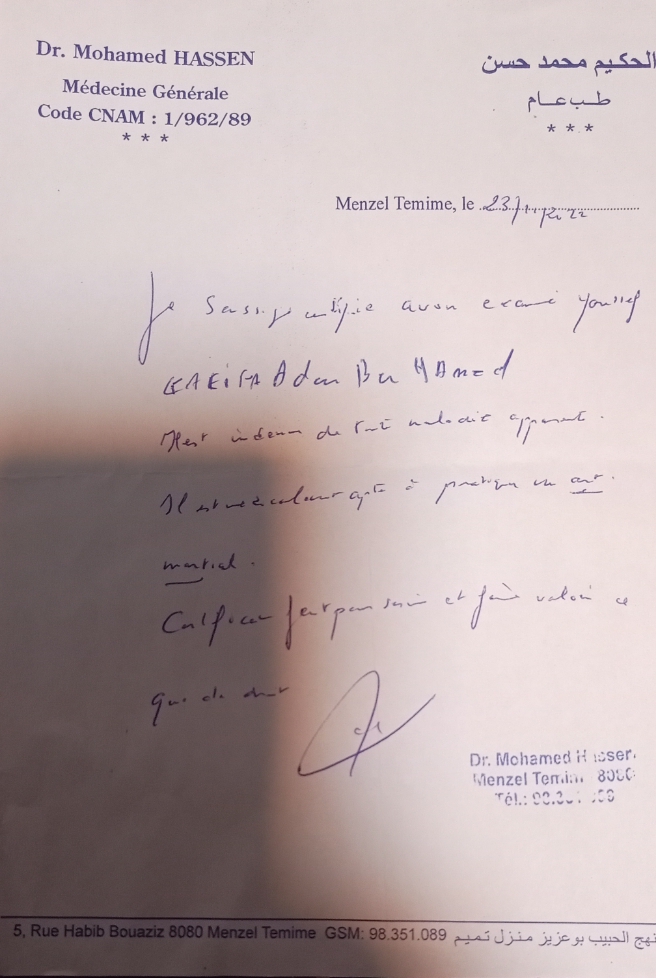 Dr. Mohamed HASSEN
Médecine Générale
Code CNAM : 1/962/89
* * *
الحكيم محمد حسن
طب عام
* * *
Menzel Temime, le 23/
Je certifie avoir examiné Youssef
Adem Ben
Il est indemne de toute maladie apparente.
Il est apte à pratiquer un art
martial.
Certificat fait pour servir et faire valoir ce
que de droit
Dr. Mohamed Hassen
Menzel Temime 8080
Tél.:
5, Rue Habib Bouaziz 8080 Menzel Temime GSM: 98.351.089 نهج الحبيب بوعزيز منزل تميم